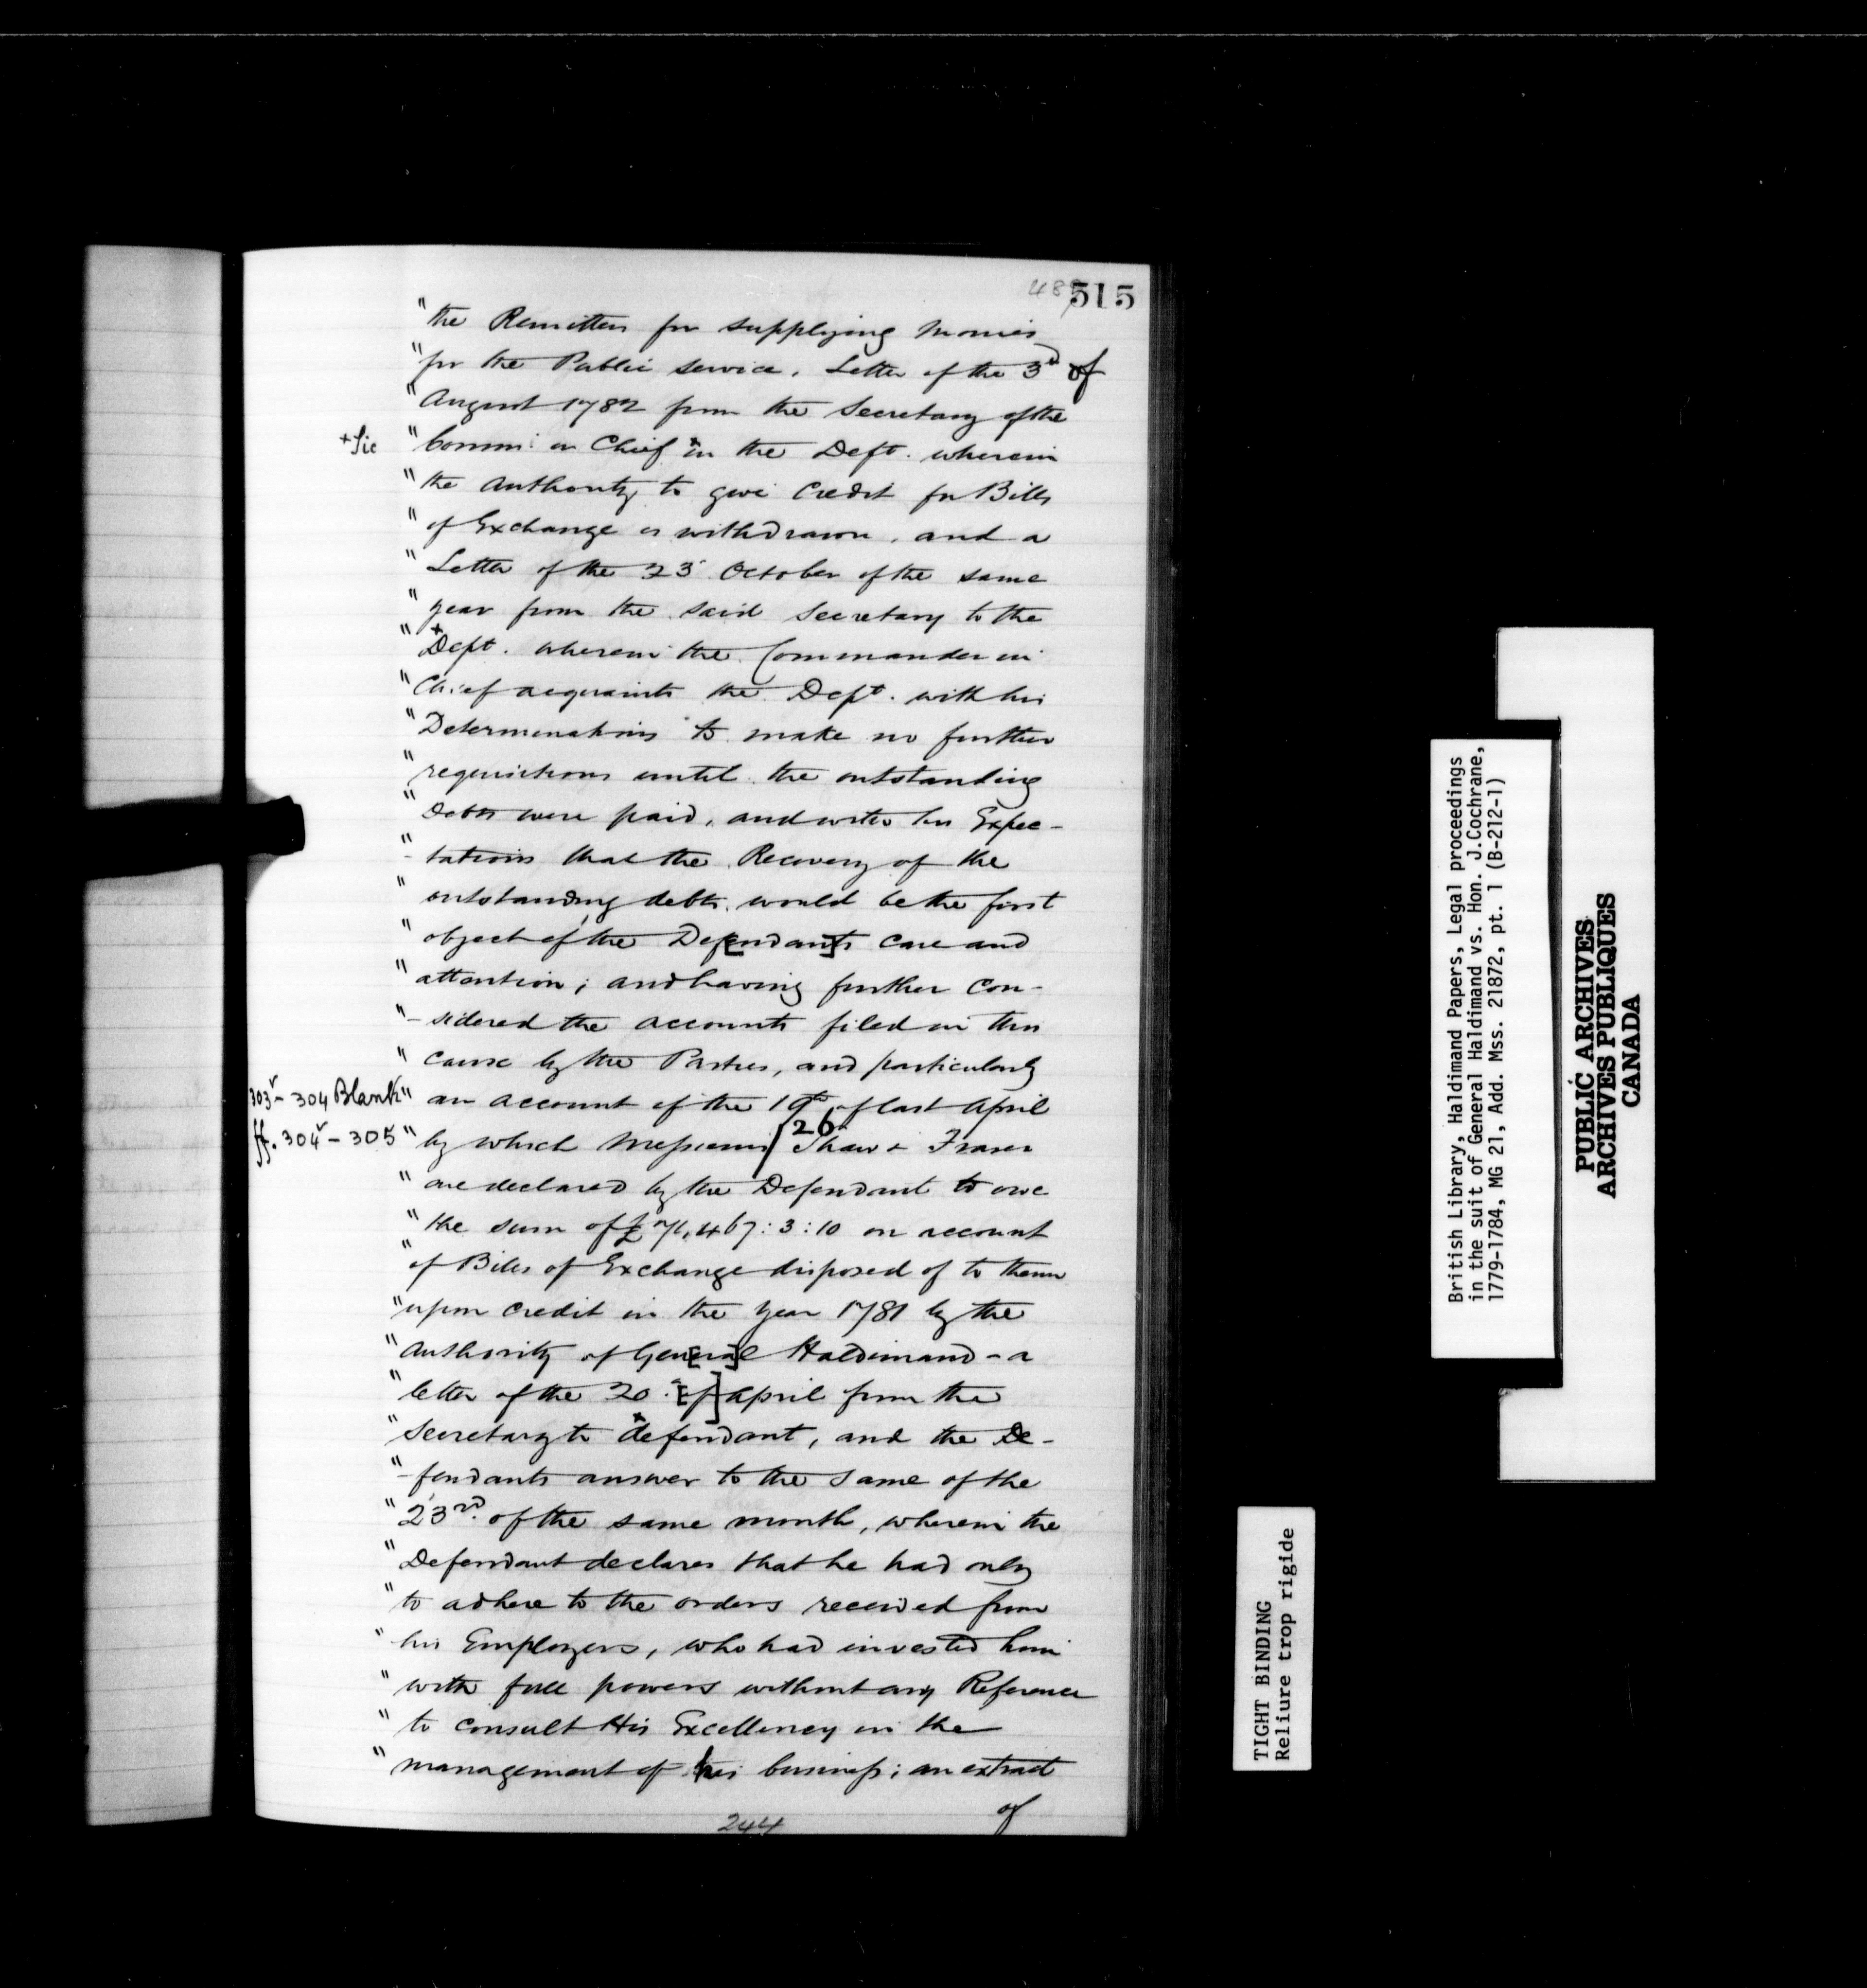 487
515
" the Remitters for supplying Monies
" for the Public service. Letter of the 3d of
" August 1782 from the Secretary of the
+ Sic " Comm: in Chief + in the Deft. wherein
" the Authority to give Credit for Bills
" of Exchange is withdrawn, and a
" Letter of the 23 October of the same
" year from the said Secretary to the
" + Deft. wherein the Commander in
" Chief acquaints the Deft. with his
" Determinations to make no further
" requisitions until the outstanding
" Debts were paid, and with his Expec-
" -tations that the Recovery of the
" outstanding debts would be the first
" object of the Def[endant]s care and
" attention; and having further Con-
" -sidered the accounts filed in this
" Cause by the Parties, and particularly
303v - 304 Blank " an account of the 19th of last April
ff. 304v - 305 " by which Messieurs / 26 Shaw + Fraser
" are declared by the Defendant to owe
" the sum of £71,467:3:10 on account
" of Bills of Exchange disposed of to them
" upon Credit in the Year 1781 by the
" Authority of Gen[era]l Haldimand - a
" letter of the 20. [of] April from the
" Secretary to + defendant, and the De-
" -fendants answer to the same of the
" 23rd. of the same month, wherein the
" Defendant declares that he had only
" to adhere to the orders received from
" his Employers, who had invested him
" with full powers without any Reference
" to consult His Excellency in the
" management of his business; an extract
of
244
British Library, Haldimand Papers, Legal proceedings
in the suit of General Haldimand vs. Hon. J.Cochrane,
1779-1784, MG 21, Add. Mss. 21872, pt. 1 (B-212-1)
PUBLIC ARCHIVES
ARCHIVES PUBLIQUES
CANADA
TIGHT BINDING
Reliure trop rigide